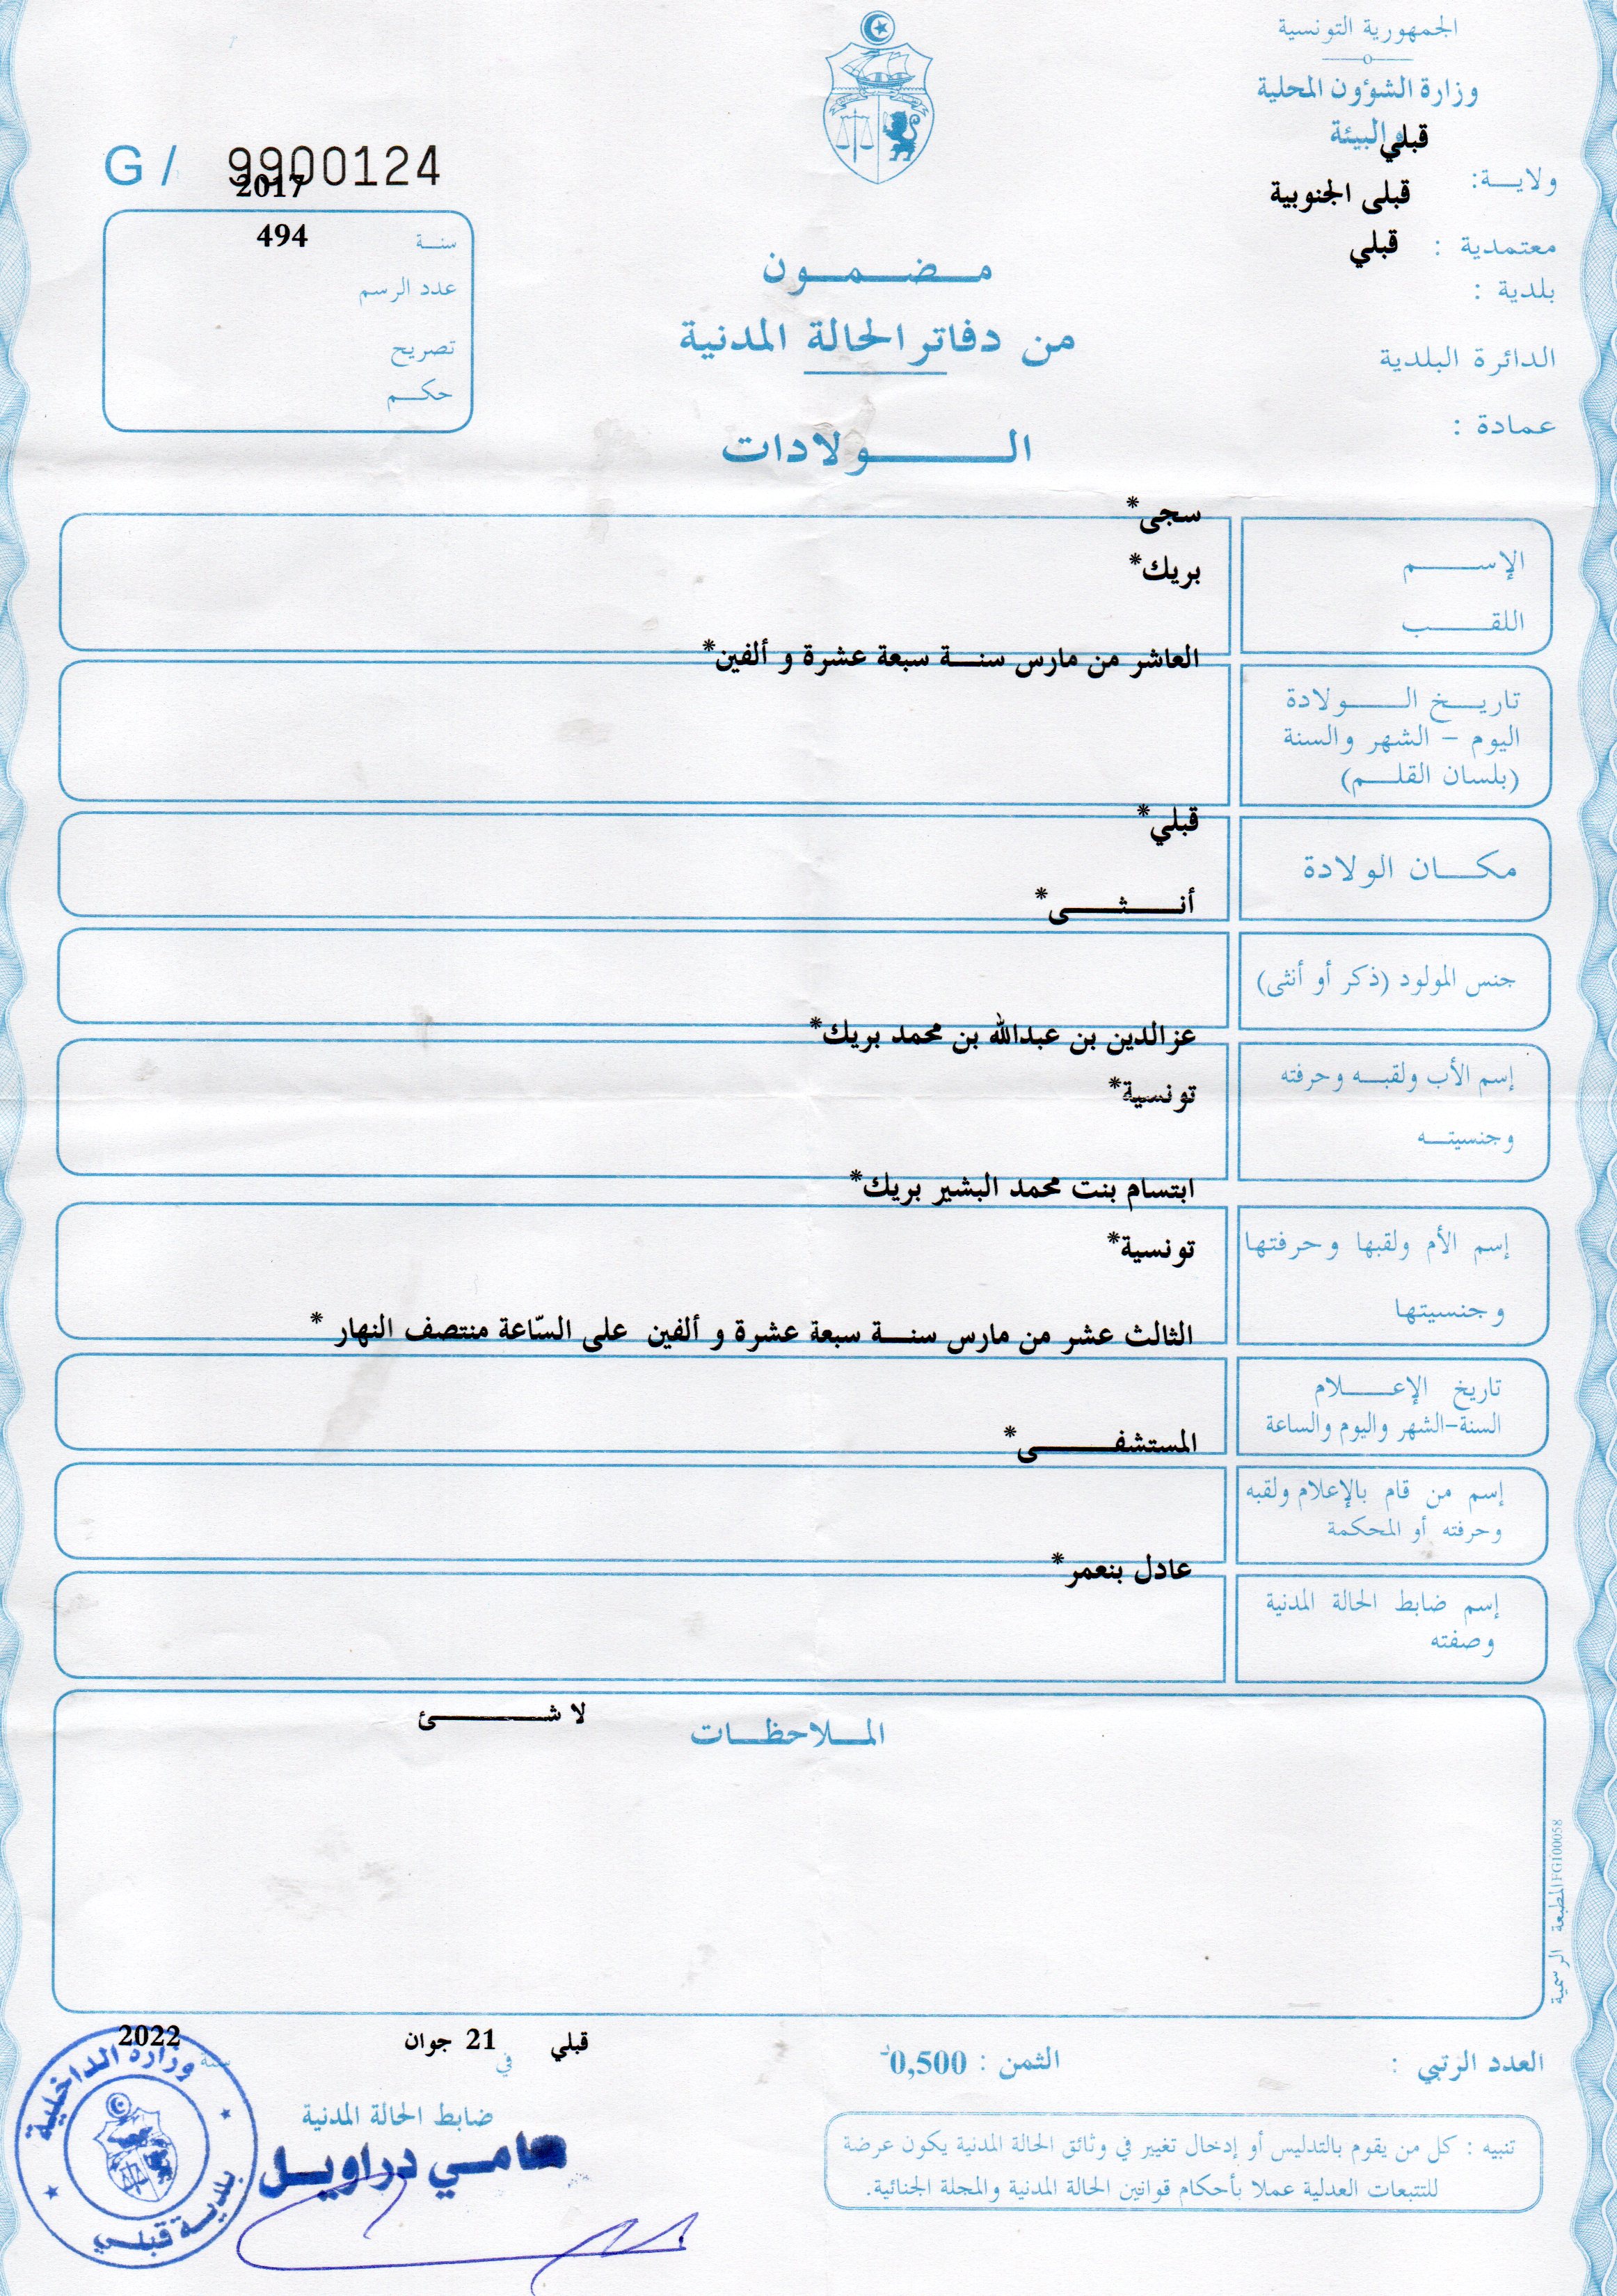 الجمهورية التونسية
وزارة الشؤون المحلية
والبيئة
ولاية: قبلي
معتمدية : قبلى الجنوبية
بلدية : قبلي
الدائرة البلدية
عمادة :
G / 9900124
سنة 2017
عدد الرسم 494
تصريح
حكم
مضمون
من دفاتر الحالة المدنية
الولادات
الإسم سجى*
اللقب بريك*
تاريخ الولادة العاشر من مارس سنة سبعة عشرة و ألفين*
اليوم - الشهر والسنة
(بلسان القلم)
مكان الولادة قبلي*
جنس المولود (ذكر أو أنثى) أنثى*
إسم الأب ولقبه وحرفته عزالدين بن عبدالله بن محمد بريك*
وجنسيته تونسية*
إسم الأم ولقبها وحرفتها ابتسام بنت محمد البشير بريك*
وجنسيتها تونسية*
تاريخ الإعلام الثالث عشر من مارس سنة سبعة عشرة و ألفين على السّاعة منتصف النهار *
السنة-الشهر واليوم والساعة
إسم من قام بالإعلام ولقبه المستشفى*
وحرفته أو المحكمة
إسم ضابط الحالة المدنية عادل بنعمر*
وصفته
الملاحظات لا شئ
المطبعة الرسمية FG100058
العدد الرتبي :
الثمن : 0,500د
قبلي في 21 جوان سنة 2022
ضابط الحالة المدنية
سامي دراويل
وزارة الداخلية
بلدية قبلي
تنبيه : كل من يقوم بالتدليس أو إدخال تغيير في وثائق الحالة المدنية يكون عرضة
للتتبعات العدلية عملا بأحكام قوانين الحالة المدنية والمجلة الجنائية.